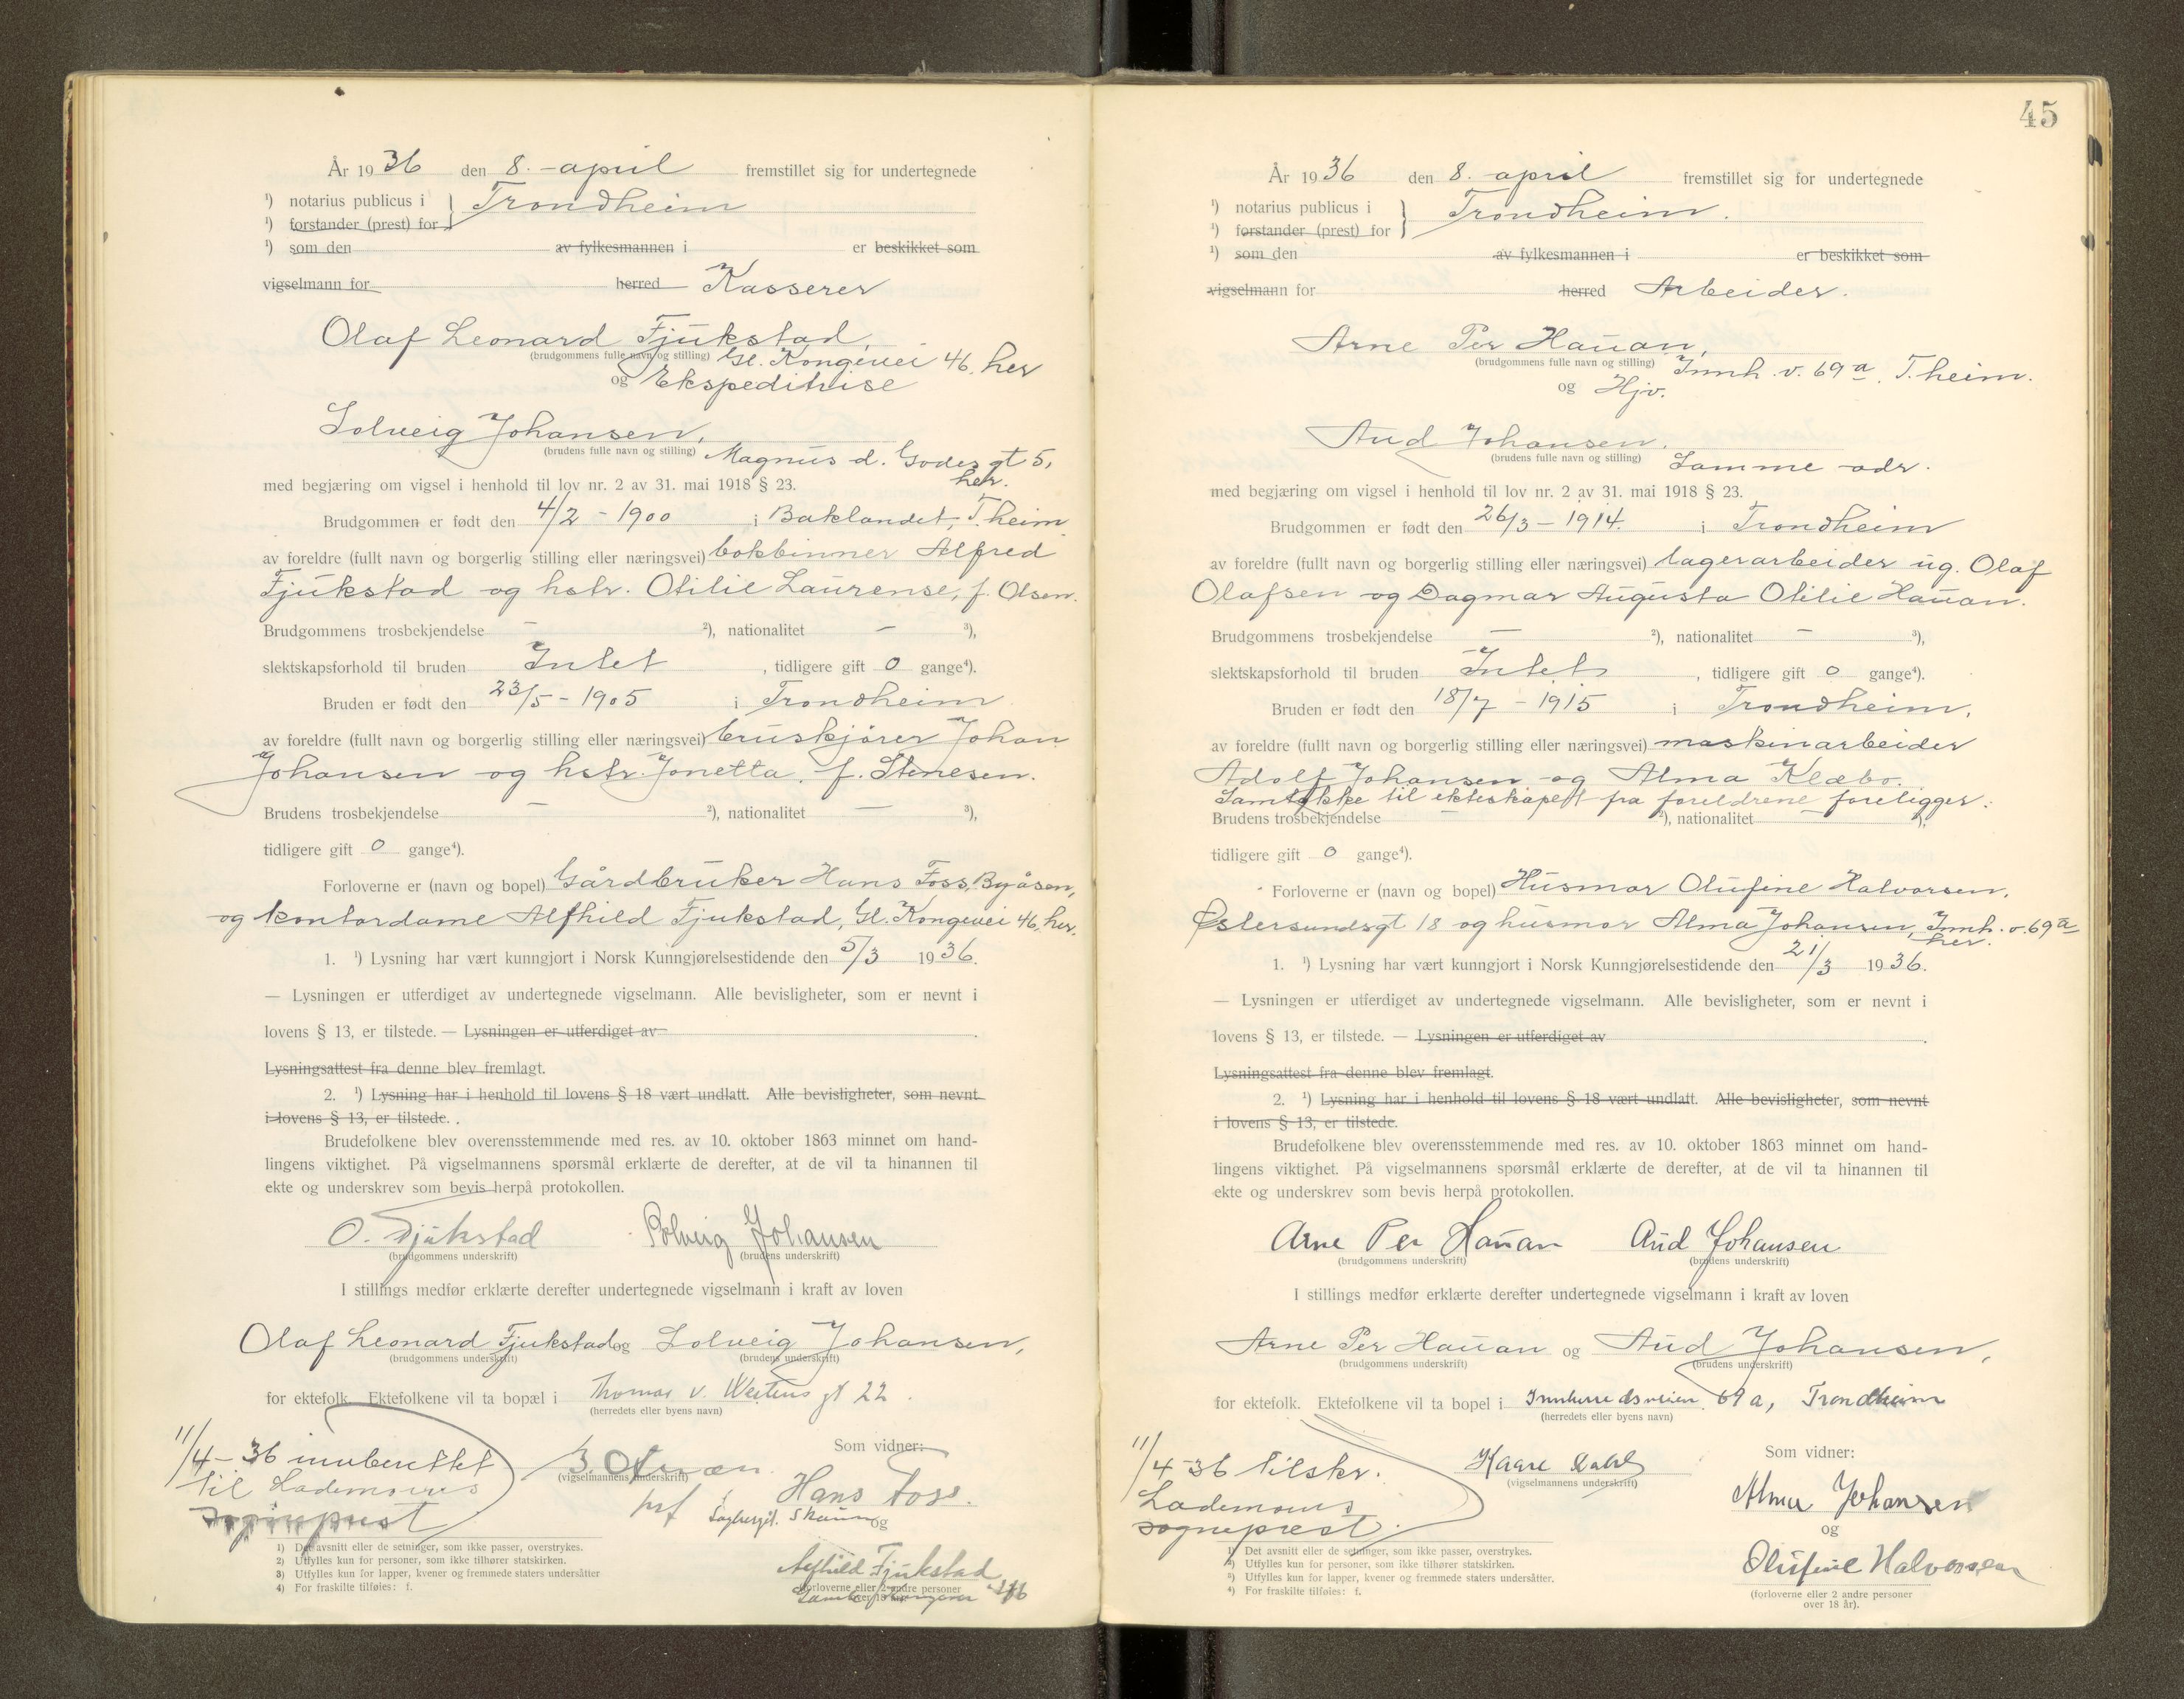 År 1936 den 8. april fremstillet sig for undertegnede
¹) notarius publicus i } Trondheim
¹) forstander (prest) for
¹) som den av fylkesmannen i er beskikket som
vigselmann for herred Kasserer
Olaf Leonard Fjukstad,
(brudgommens fulle navn og stilling) Gl. Kongevei 46, her
og Ekspeditrise
Solveig Johansen,
(brudens fulle navn og stilling) Magnus d. Godes gt 5,
her.
med begjæring om vigsel i henhold til lov nr. 2 av 31. mai 1918 § 23.
Brudgommen er født den 4/2 - 1900 i Baklandet, T.heim
av foreldre (fullt navn og borgerlig stilling eller næringsvei) bokbinner Alfred
Fjukstad og hstr. Otilie Laurense, f. Olsen.
Brudgommens trosbekjendelse — ²), nationalitet — ³),
slektskapsforhold til bruden Intet, tidligere gift 0 gange⁴).
Bruden er født den 23/5 - 1905 i Trondheim
av foreldre (fullt navn og borgerlig stilling eller næringsvei) bruskjører Johan
Johansen og hstr. Jonetta, f. Stenesen.
Brudens trosbekjendelse — ²), nationalitet — ³),
tidligere gift 0 gange⁴).
Forloverne er (navn og bopel) Gårdbruker Hans Foss, Byåsen,
og kontordame Alfhild Fjukstad, Gl. Kongevei 46, her.
1. ¹) Lysning har vært kunngjort i Norsk Kunngjørelsestidende den 5/3 1936.
— Lysningen er utferdiget av undertegnede vigselmann. Alle bevisligheter, som er nevnt i
lovens § 13, er tilstede. — Lysningen er utferdiget av .
Lysningsattest fra denne blev fremlagt.
2. ¹) Lysning har i henhold til lovens § 18 vært undlatt. Alle bevisligheter, som nevnt
i lovens § 13, er tilstede. .
Brudefolkene blev overensstemmende med res. av 10. oktober 1863 minnet om hand-
lingens viktighet. På vigselmannens spørsmål erklærte de derefter, at de vil ta hinannen til
ekte og underskrev som bevis herpå protokollen.
O. Fjukstad Solveig Johansen
(brudgommens underskrift) (brudens underskrift)
I stillings medfør erklærte derefter undertegnede vigselmann i kraft av loven
Olaf Leonard Fjukstad og Solveig Johansen,
(brudgommens underskrift) (brudens underskrift)
for ektefolk. Ektefolkene vil ta bopæl i Thomas v. Westens gt 22.
(herredets eller byens navn)
11/4-36 innberettet
til Lademoens
sogneprest
Som vidner:
(vigselmannens underskrift)
Hans Foss.
og
Alfhild Fjukstad
(forloverne eller 2 andre personer
over 18 år).
1) Det avsnitt eller de setninger, som ikke passer, overstrykes.
2) Utfylles kun for personer, som ikke tilhører statskirken.
3) Utfylles kun for lapper, kvener og fremmede staters undersåtter
4) For fraskilte tilføies: f.
45
År 1936 den 8. april fremstillet sig for undertegnede
¹) notarius publicus i } Trondheim.
¹) forstander (prest) for
¹) som den av fylkesmannen i er beskikket som
vigselmann for herred Arbeider.
Arne Per Hauan,
(brudgommens fulle navn og stilling) Innh. v. 69a, T.heim.
og Hjv.
Aud Johansen.
(brudens fulle navn og stilling) Samme adr.
med begjæring om vigsel i henhold til lov nr. 2 av 31. mai 1918 § 23.
Brudgommen er født den 26/3 - 1914. i Trondheim
av foreldre (fullt navn og borgerlig stilling eller næringsvei) lagerarbeider ug. Olaf
Olafsen og Dagmar Augusta Otilie Hauan.
Brudgommens trosbekjendelse — ²), nationalitet — ³),
slektskapsforhold til bruden Intet, tidligere gift 0 gange⁴).
Bruden er født den 18/7 - 1915 i Trondheim,
av foreldre (fullt navn og borgerlig stilling eller næringsvei) maskinarbeider
Adolf Johansen og Alma Klæbo.
Samtykke til ekteskapet fra foreldrene foreligger.
Brudens trosbekjendelse — ²), nationalitet ³),
tidligere gift 0 gange⁴).
Forloverne er (navn og bopel) Husmor Olufine Halvorsen,
Østersundsgt 18 og husmor Alma Johansen, Innh. v. 69a
her.
1. ¹) Lysning har vært kunngjort i Norsk Kunngjørelsestidende den 21/3 1936.
— Lysningen er utferdiget av undertegnede vigselmann. Alle bevisligheter, som er nevnt i
lovens § 13, er tilstede. — Lysningen er utferdiget av .
Lysningsattest fra denne blev fremlagt.
2. ¹) Lysning har i henhold til lovens § 18 vært undlatt. Alle bevisligheter, som nevnt
i lovens § 13, er tilstede.
Brudefolkene blev overensstemmende med res. av 10. oktober 1863 minnet om hand-
lingens viktighet. På vigselmannens spørsmål erklærte de derefter, at de vil ta hinannen til
ekte og underskrev som bevis herpå protokollen.
Arne Per Hauan Aud Johansen
(brudgommens underskrift) (brudens underskrift)
I stillings medfør erklærte derefter undertegnede vigselmann i kraft av loven
Arne Per Hauan og Aud Johansen,
(brudgommens underskrift) (brudens underskrift)
for ektefolk. Ektefolkene vil ta bopel i Innherredsveien 69a, Trondheim
(herredets eller byens navn)
11/4-36 tilskr.
Lademoens
sogneprest.
Kaare Dahl
(vigselmannens underskrift)
Som vidner:
Alma Johansen
og
Olufine Halvorsen
(forloverne eller 2 andre personer
over 18 år).
¹) Det avsnitt eller de setninger, som ikke passer, overstrykes.
²) Utfylles kun for personer, som ikke tilhører statskirken.
³) Utfylles kun for lapper, kvener og fremmede staters undersåtter.
⁴) For fraskilte tilføies: f.